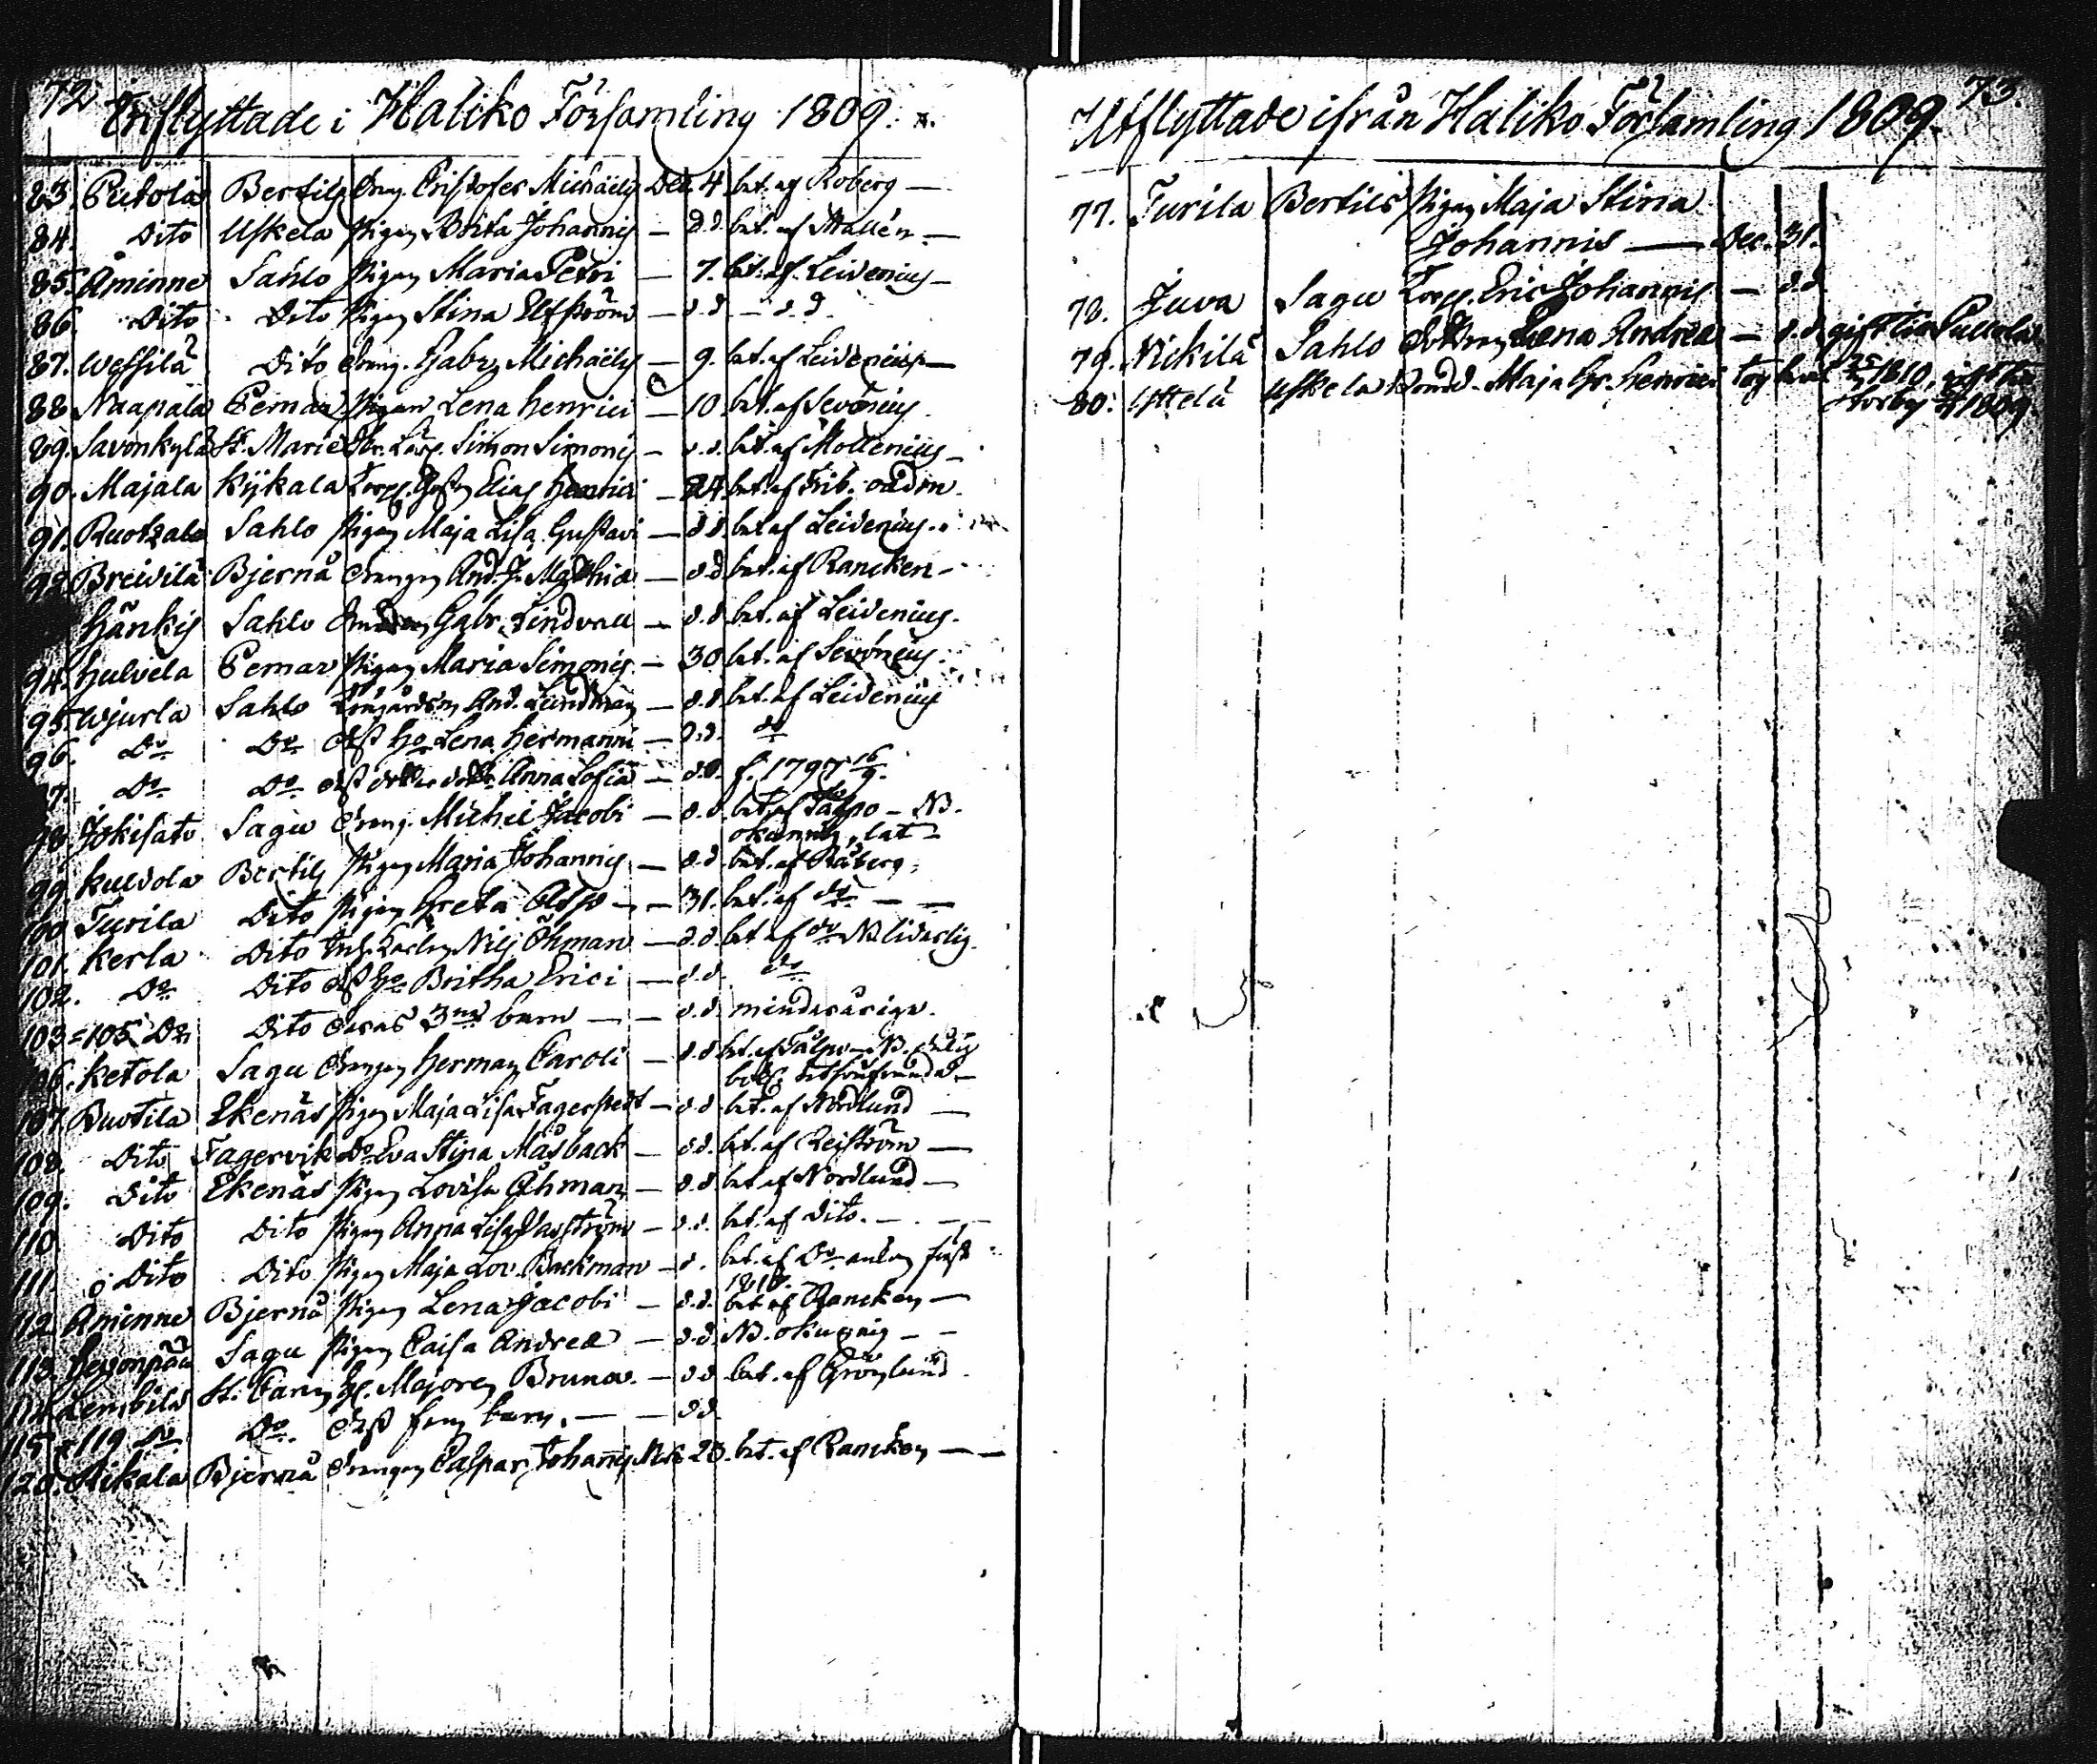 72
Inflyttade i Haliko Församling 1809.
83. Pietola Bertils Dreng. Cristofer Michaëlis Dec. 4 bet. af Roberg —
84. Dito Uskela Pigan Brita Johannis — d.d. bet. af Mallén —
85. Åminne Sahlo Pigan Maria Petri — 7. bet. af Leidenius —
86. Dito Dito Pigan Stina Elfström — d.d — d.d.
87. Wessilä Dito Dreng. Gabr. Michaëlis — 9. bet. af Leidenius —
88. Naapala Pemar Pigan Lena Henrici — 10. bet. af Sevonius
89. Savonkylä St. Marie Simon Simonis — d.d. bet. af Mollenius —
90. Majala Kijkala Torp. Elias Henrici — 24. bet. af
91. Ruotzala Sahlo Pigan Maja Lisa Gustavi — d.d. bet. af Leidenius.
92. Breidilä Bjernå Drengen And. J. Mathiæ — d.d bet. af Rancken —
Hänkis Sahlo Gabr. Lindvall — d.d bet. af Leidenius.
94. Hulvela Pemar Pigan Maria Simonis — 30 bet. af Sevonius.
95. Wjurla Sahlo And. Lindman — d.d bet. af Leidenius
96. Do Do Dess Ho Lena Hermanni — d.d. do
97. Do Do Dess Anna Sofia — d.d. f. 1797 16/9.
98. Jokisato Sagu Dreng. Michel Jacobi — d.d. bet. af Talpo — NB.
okunnig, lat —
99. Kulvola Bertils Pigan Maria Johannis — d.d bet. af Råberg.
100. Turila Dito Pigan Greta — — 31. bet. af do — —
101. Kerla Dito Nils Öhman — d.d. bet. af do NB liderlig.
102. Do Dito Dess Ho Britha Erici — d.d. do
103=105 Do Dito Deras 3ne barn — — d.d. minderåriga.
106. Ketola Sagu Drengen Herman Caroli — d.d bet. af Talpo — NB.
107 Buotila Ekenäs Pigan Maja Lisa Fagerstedt — d.d bet. af Nordlund —
108. Dito Fagervik Do Eva Stina Måsback — d.d. bet. af Reiström —
109. Dito Ekenäs Pigan Lovisa Öhman — d.d bet. af Nordlund —
110 Dito Dito Pigan Anna Lisa — d.d. bet. af Dito. — — —
111. Dito Dito Pigan Maja Lov. Backman — d. bet. af Do först
1810.
112 Åminne Bjernå Pigan Lena Jacobi — d.d. bet. af Rancken —
113. Hevonpää Sagu Pigan Caisa Andreæ — d.d. NB. okunnig — —
114 Lembilä St. Carin H. Majoren Bruna. — d.d bet. af Grönlund
115=119 Do Do. Dess fem barn. — — d.d.
120. Hikala Bjernå Drengen Caspar Johannis 28. bet. af Rancken — —
73.
Utflyttade ifrån Haliko Församling 1809.
77. Turila Bertils Pigan Maja Stina
Johannis — Dec. 31.
78. Juva Sagu Torp. Eric Johannis — d.d
79. Nickilä Sahlo Lena Andreæ — d.d. gift till Pullola
80. Yttelä Uskela Maja Gr. Henrici tog betel 1810,
1809